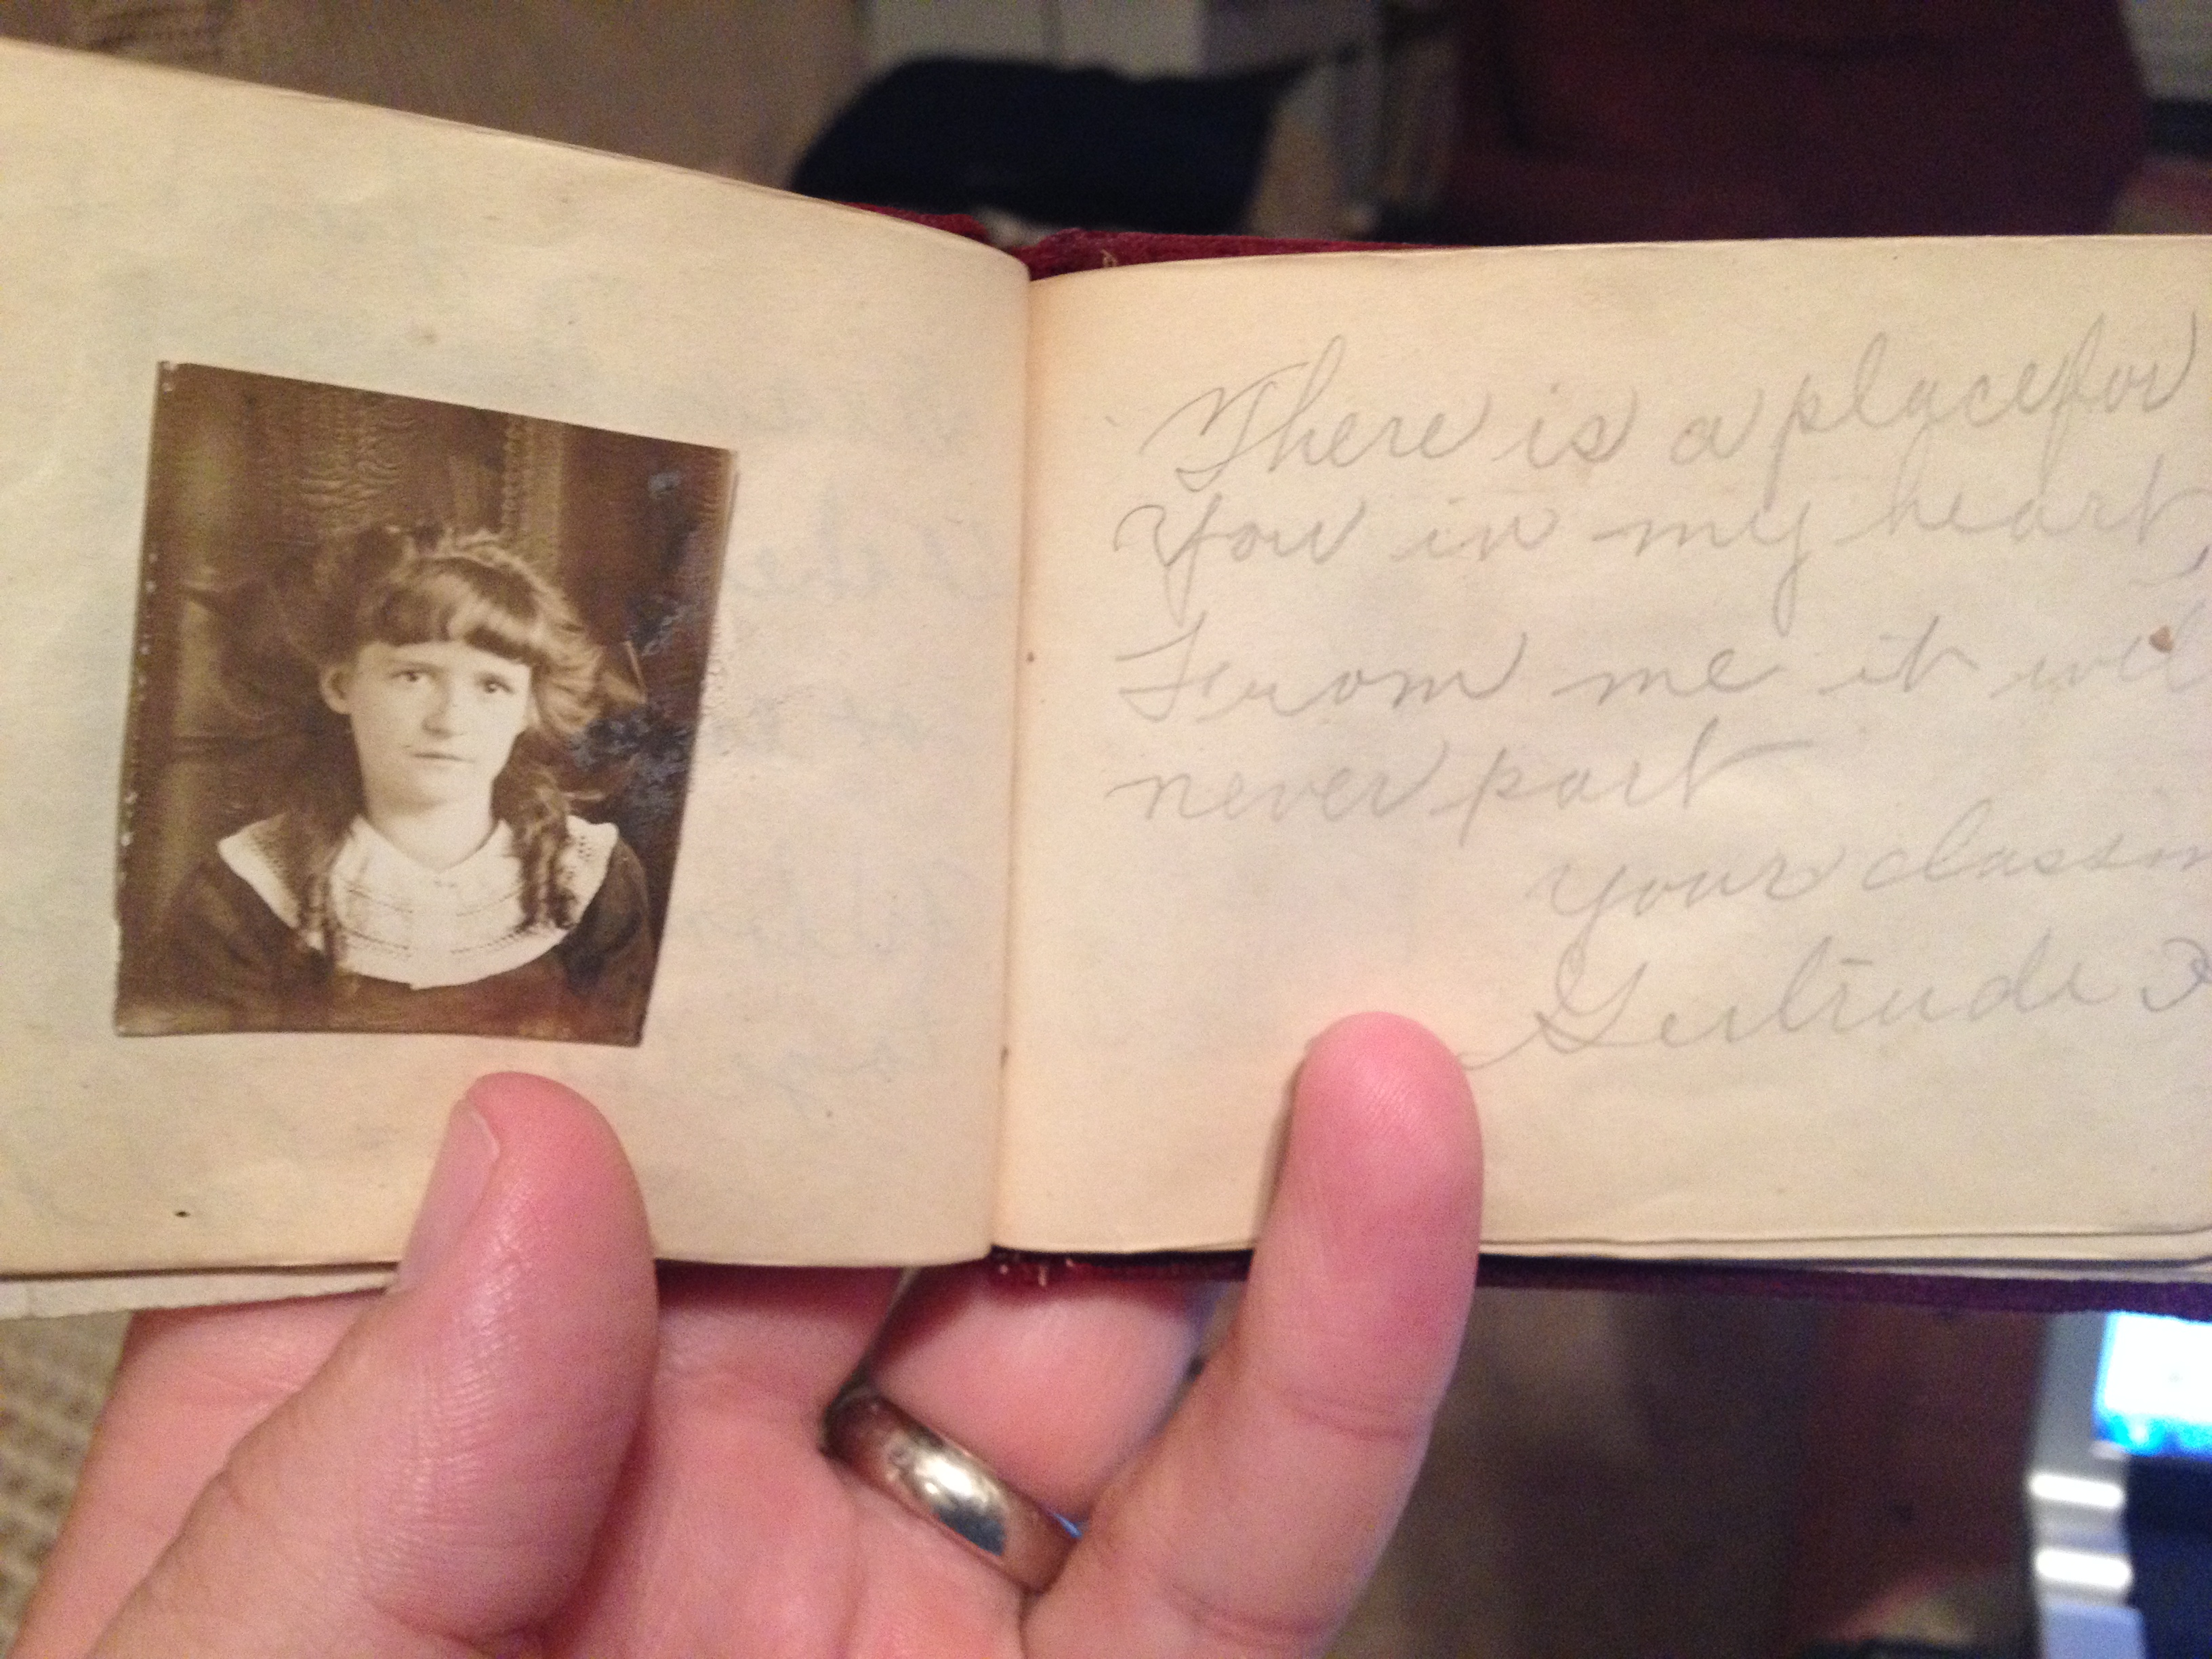 There is a place for
You in my heart,
From me it will
never part
your classm
Gertrude